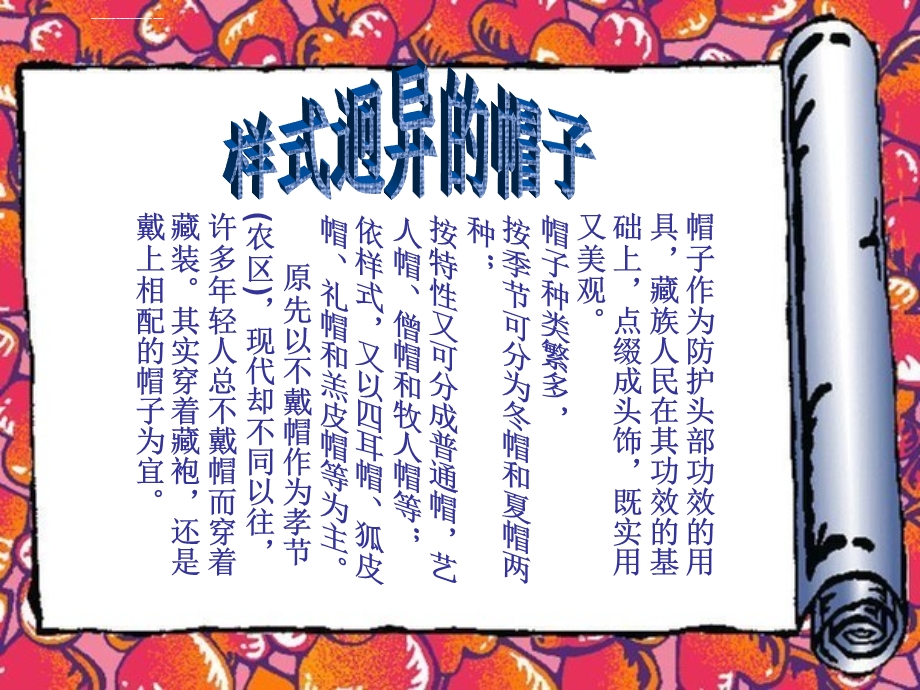 样式迥异的帽子
帽子作为防护头部功效的用
具，藏族人民在其功效的基
础上，点缀成头饰，既实用
又美观。
帽子种类繁多，
按季节可分为冬帽和夏帽两
种；
按特性又可分成普通帽，艺
人帽、僧帽和牧人帽等；
依样式，又以四耳帽、狐皮
帽、礼帽和羔皮帽等为主。
原先以不戴帽作为孝节
(农区)，现代却不同以往，
许多年轻人总不戴帽而穿着
藏装。其实穿着藏袍，还是
戴上相配的帽子为宜。